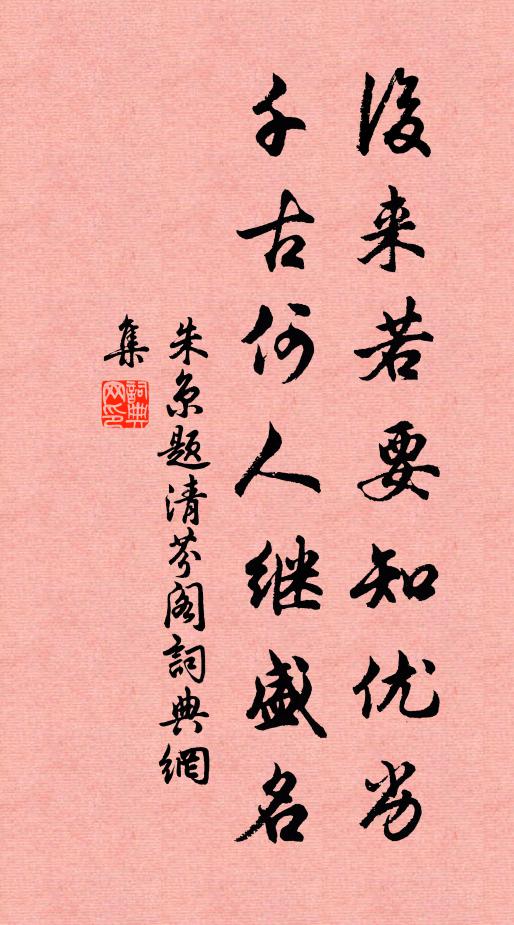 後来若要知优劣
千古何人继盛名
朱京题清芬阁詞典網
集
詞典網印